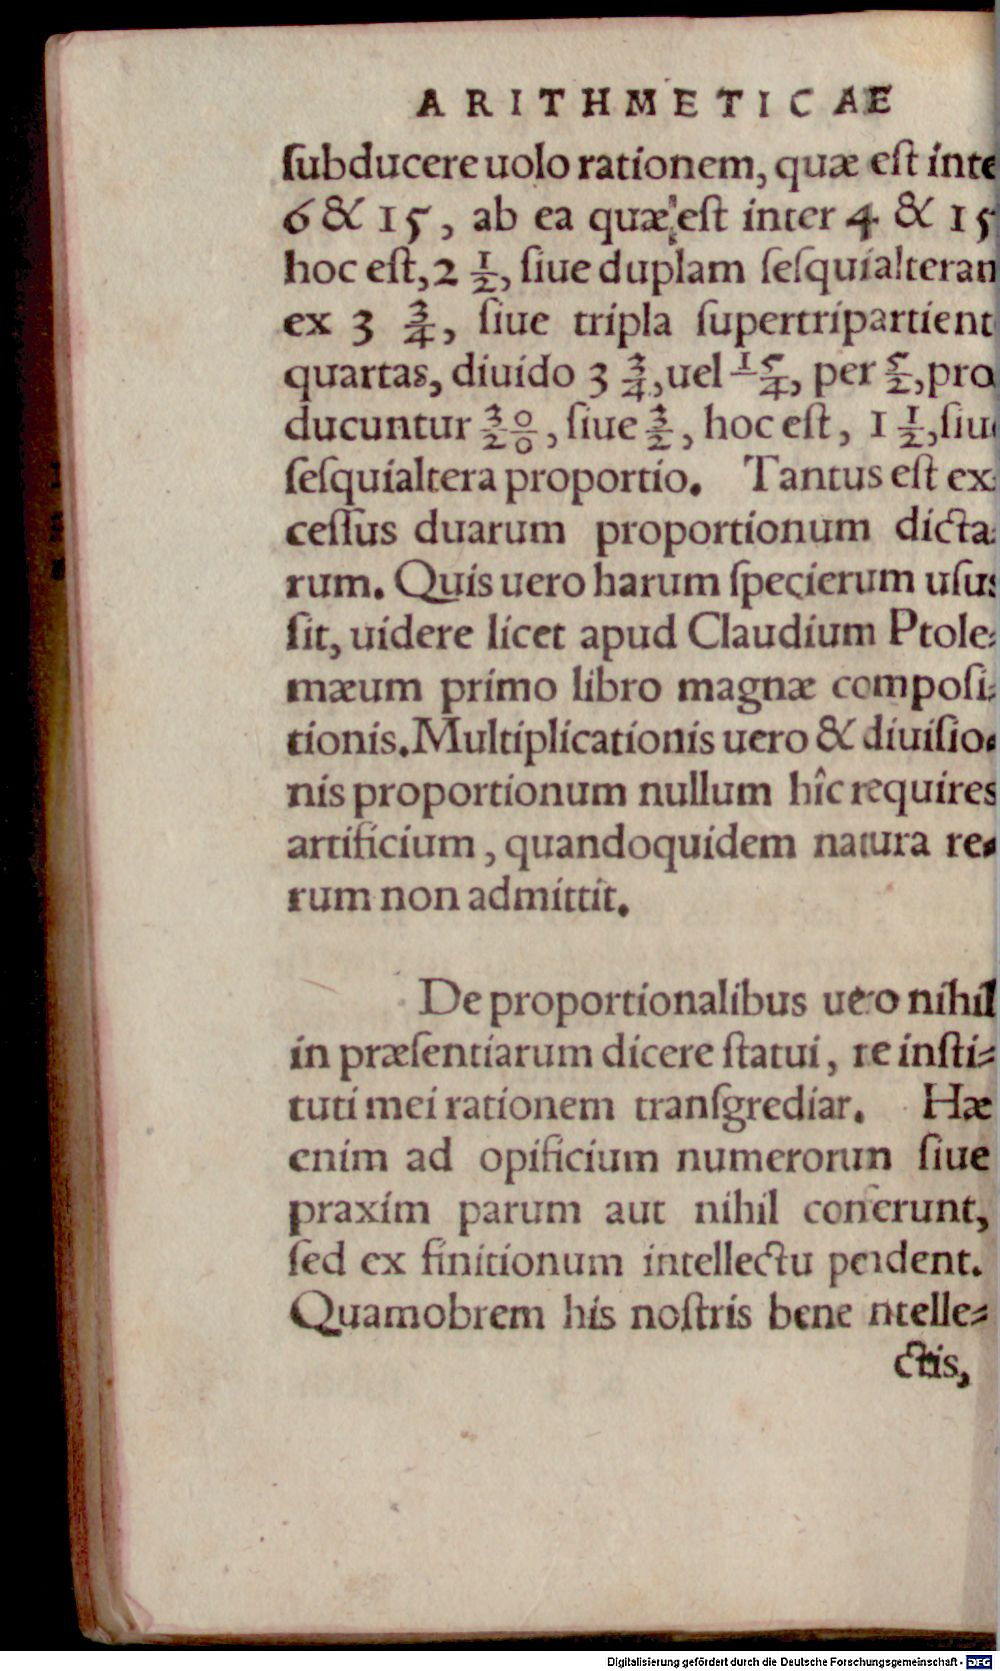 ARITHMETICAE
ſubducere uolo rationem, quæ eſt inte
6 & 15, ab ea quæ eſt inter 4 & 15
hoc eſt, 2 1/2, ſiue duplam ſeſquialteran
ex 3 3/4, ſiue tripla ſupertripartient
quartas, diuido 3 3/4, uel 15/4, per 5/2, pro
ducuntur 30/20, ſiue 3/2, hoc eſt, 1 1/2, ſiu
ſeſquialtera proportio. Tantus eſt ex⸗
ceſſus duarum proportionum dicta⸗
rum. Quis uero harum ſpecierum uſus
ſit, uidere licet apud Claudium Ptole⸗
mæum primo libro magnæ compoſi⸗
tionis. Multiplicationis uero & diuiſio⸗
nis proportionum nullum hîc requires
artificium, quandoquidem natura re⸗
rum non admittit.
De proportionalibus uero nihil
in præſentiarum dicere ſtatui, ne inſti⸗
tuti mei rationem tranſgrediar. Hæ
enim ad opificium numerorun ſiue
praxim parum aut nihil conferunt,
ſed ex finitionum intellectu pendent.
Quamobrem his noſtris bene ntelle⸗
ctis,
Digitalisierung gefördert durch die Deutsche Forschungsgemeinschaft - DFG